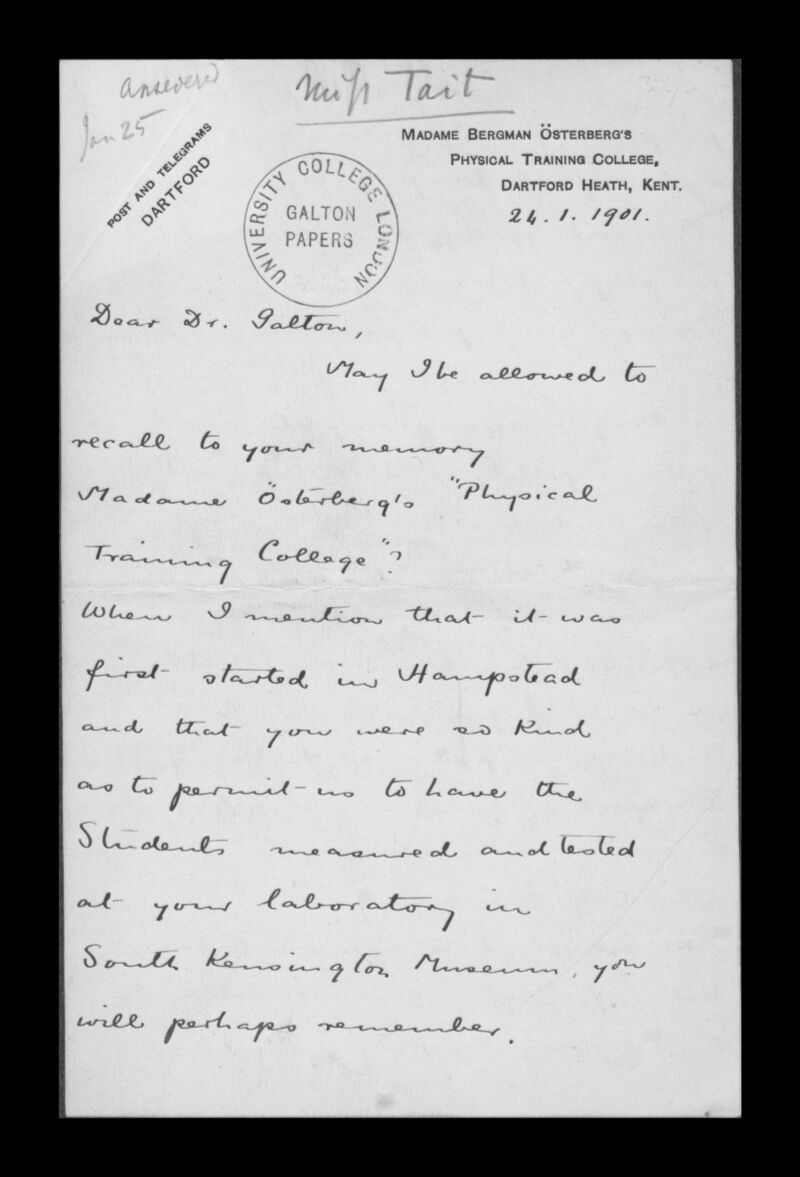 answered
Jan 25
Miss Tait
POST AND TELEGRAMS
DARTFORD
MADAME BERGMAN ÖSTERBERG'S
PHYSICAL TRAINING COLLEGE,
DARTFORD HEATH, KENT.
24.1.1901.
UNIVERSITY COLLEGE LONDON
GALTON
PAPERS
Dear Dr. Galton,
May I be allowed to
recall to your memory
Madame Österberg's "Physical
Training College"?
When I mention that it was
first started in Hampstead
and that you were so kind
as to permit us to have the
Students measured and tested
at your laboratory in
South Kensington Museum, you
will perhaps remember.